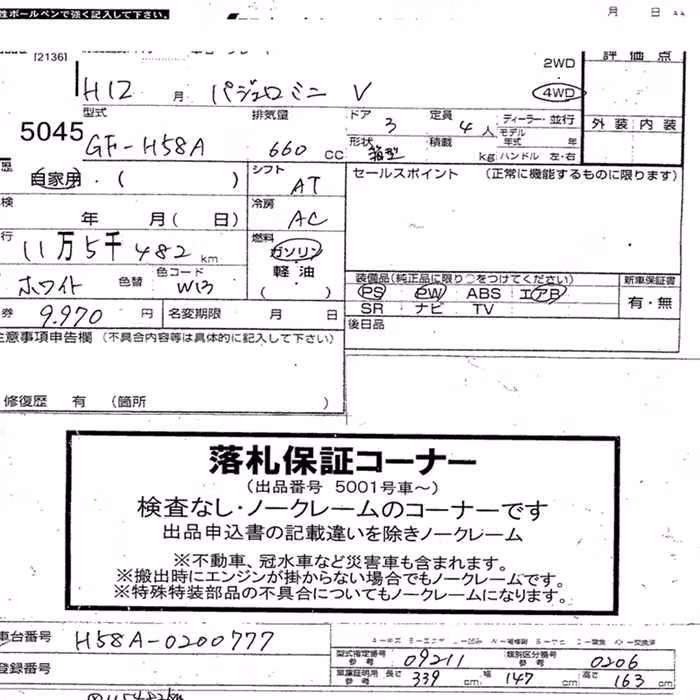 性ボールペンで強く記入して下さい。
月 日
[2136]
評価点
2WD
4WD
H12 月 パジェロミニ V
型式 排気量 ドア 定員 ディーラー・並行
外装 内装
5045
GF-H58A 660 cc 3 4人 モデル年式 年
形状 箱型 積載 kg ハンドル 左・右
歴 自家用・( ) シフト AT
セールスポイント (正常に機能するものに限ります)
検 年 月( 日) 冷房 AC
行 11万5千482 km 燃料 ガソリン 軽油 ( )
ホワイト 色替 色コード W13
装備品(純正品に限り○をつけてください) 新車保証書
PS PW ABS エアB 有・無
SR ナビ TV
券 9.970 円 名変期限 月 日
後日品
注意事項申告欄 (不具合内容等は具体的に記入して下さい)
修復歴 有 (箇所 )
落札保証コーナー
(出品番号 5001号車~)
検査なし・ノークレームのコーナーです
出品申込書の記載違いを除きノークレーム
※不動車、冠水車など災害車も含まれます。
※搬出時にエンジンが掛からない場合でもノークレームです。
※特殊特装部品の不具合についてもノークレームになります。
車台番号 H58A-0200777
型式指定番号 参考 09211 類別区分番号 参考 0206
登録番号
車庫証明用 参考 長さ 339 cm 幅 147 cm 高さ 163 cm